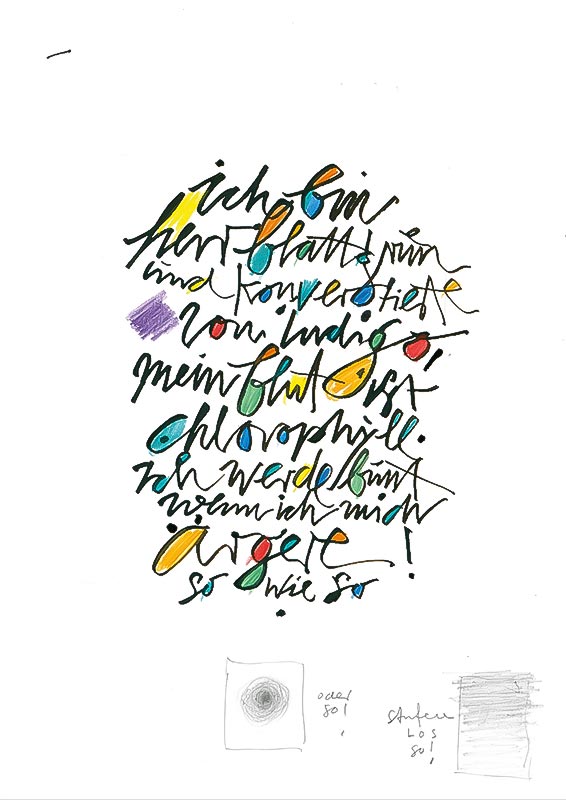 ich bin
herr blattgrün
und
von indigo,
mein blut ist
chlorophyll.
ich werde bunt
wenn ich mich
ärgere!
so wie so
oder
so!
stufen
LOS
so!